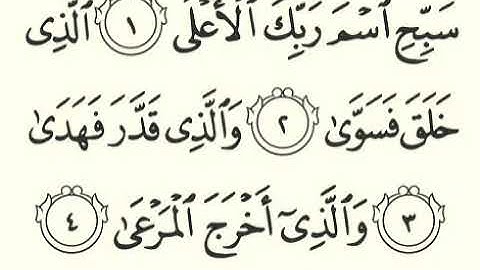 سَبِّحِ ٱسْمَ رَبِّكَ ٱلْأَعْلَى ١ ٱلَّذِى
خَلَقَ فَسَوَّىٰ ٢ وَٱلَّذِى قَدَّرَ فَهَدَىٰ
٣ وَٱلَّذِىٓ أَخْرَجَ ٱلْمَرْعَىٰ ٤